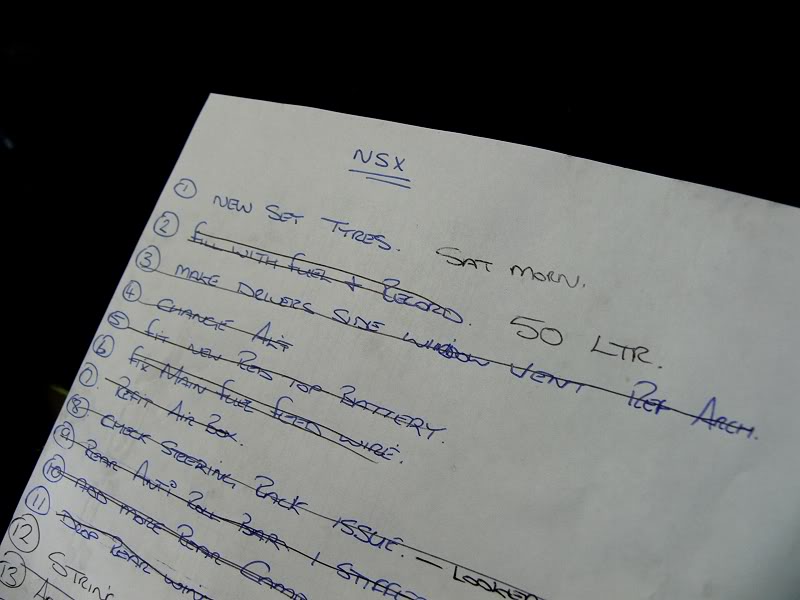 NSX
① NEW SET TYRES. SAT MORN.
② FILL WITH FUEL & RECORD. 50 LTR.
③ MAKE DRIVERS SIDE WINDOW VENT REF ARCH.
④ CHANGE ALT
⑤ FIT NEW RED TOP BATTERY.
⑥ FIX MAIN FUEL FEED WIRE.
⑦ REFIT AIR BOX.
⑧ CHECK STEERING RACK ISSUE. – LOOKED
⑨ REAR ANTI ROLL BAR. 1 STIFFE
⑩ ADD MORE REAR
⑪ DROP REAR WIN
⑫ STRING
⑬